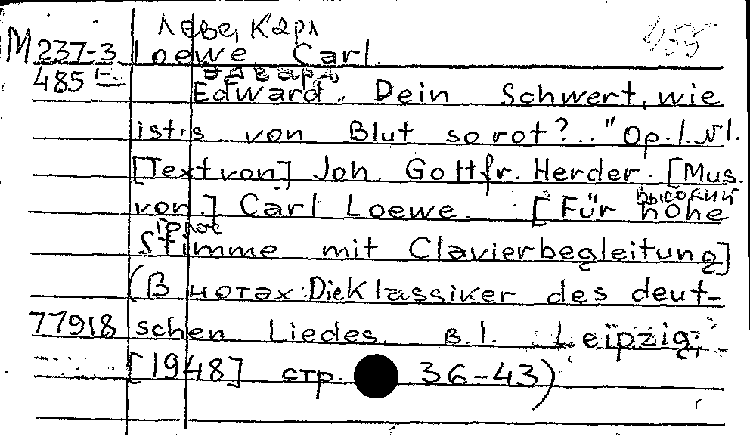 Леве, Карл
M 237-3 Loewe Carl.
485
Эдвард
Edward. Dein Schwert, wie
ist's von Blut so rot?.." Op. 1. N1.
[Text von] Joh. Gottfr. Herder. [Mus.
высокий
von.] Carl Loewe. [Für hohe
голос
Stimme mit Clavierbegleitung]
(В нотах: Die Klassiker des deut-
77918 schen Liedes. B. 1. Leipzig,
[1948] стр. 36-43)